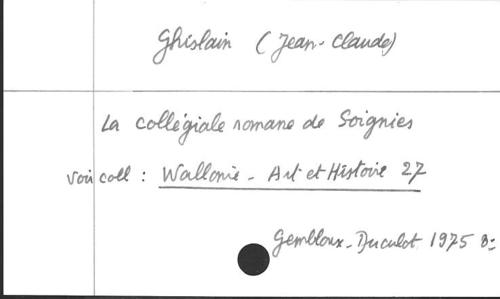 Ghislain (Jean-Claude)
La collégiale romane de Soignies
Voir coll : Wallonie - Art et Histoire 27
Gembloux-Duculot 1975 8=